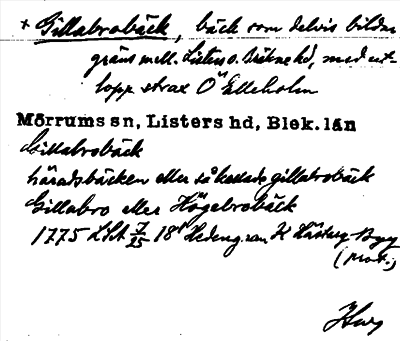 + Gillabrobäck, bäck som delvis bildar
gräns mell. Listers o. Bräkne hd, med ut-
lopp strax Ö Elleholm
Mörrums sn, Listers hd, Blek. län
Gillabrobäck
häradsbäcken eller så kallade gillabrobäck
Gillabro eller Högebrobäck
1775 LSA 7/25 18